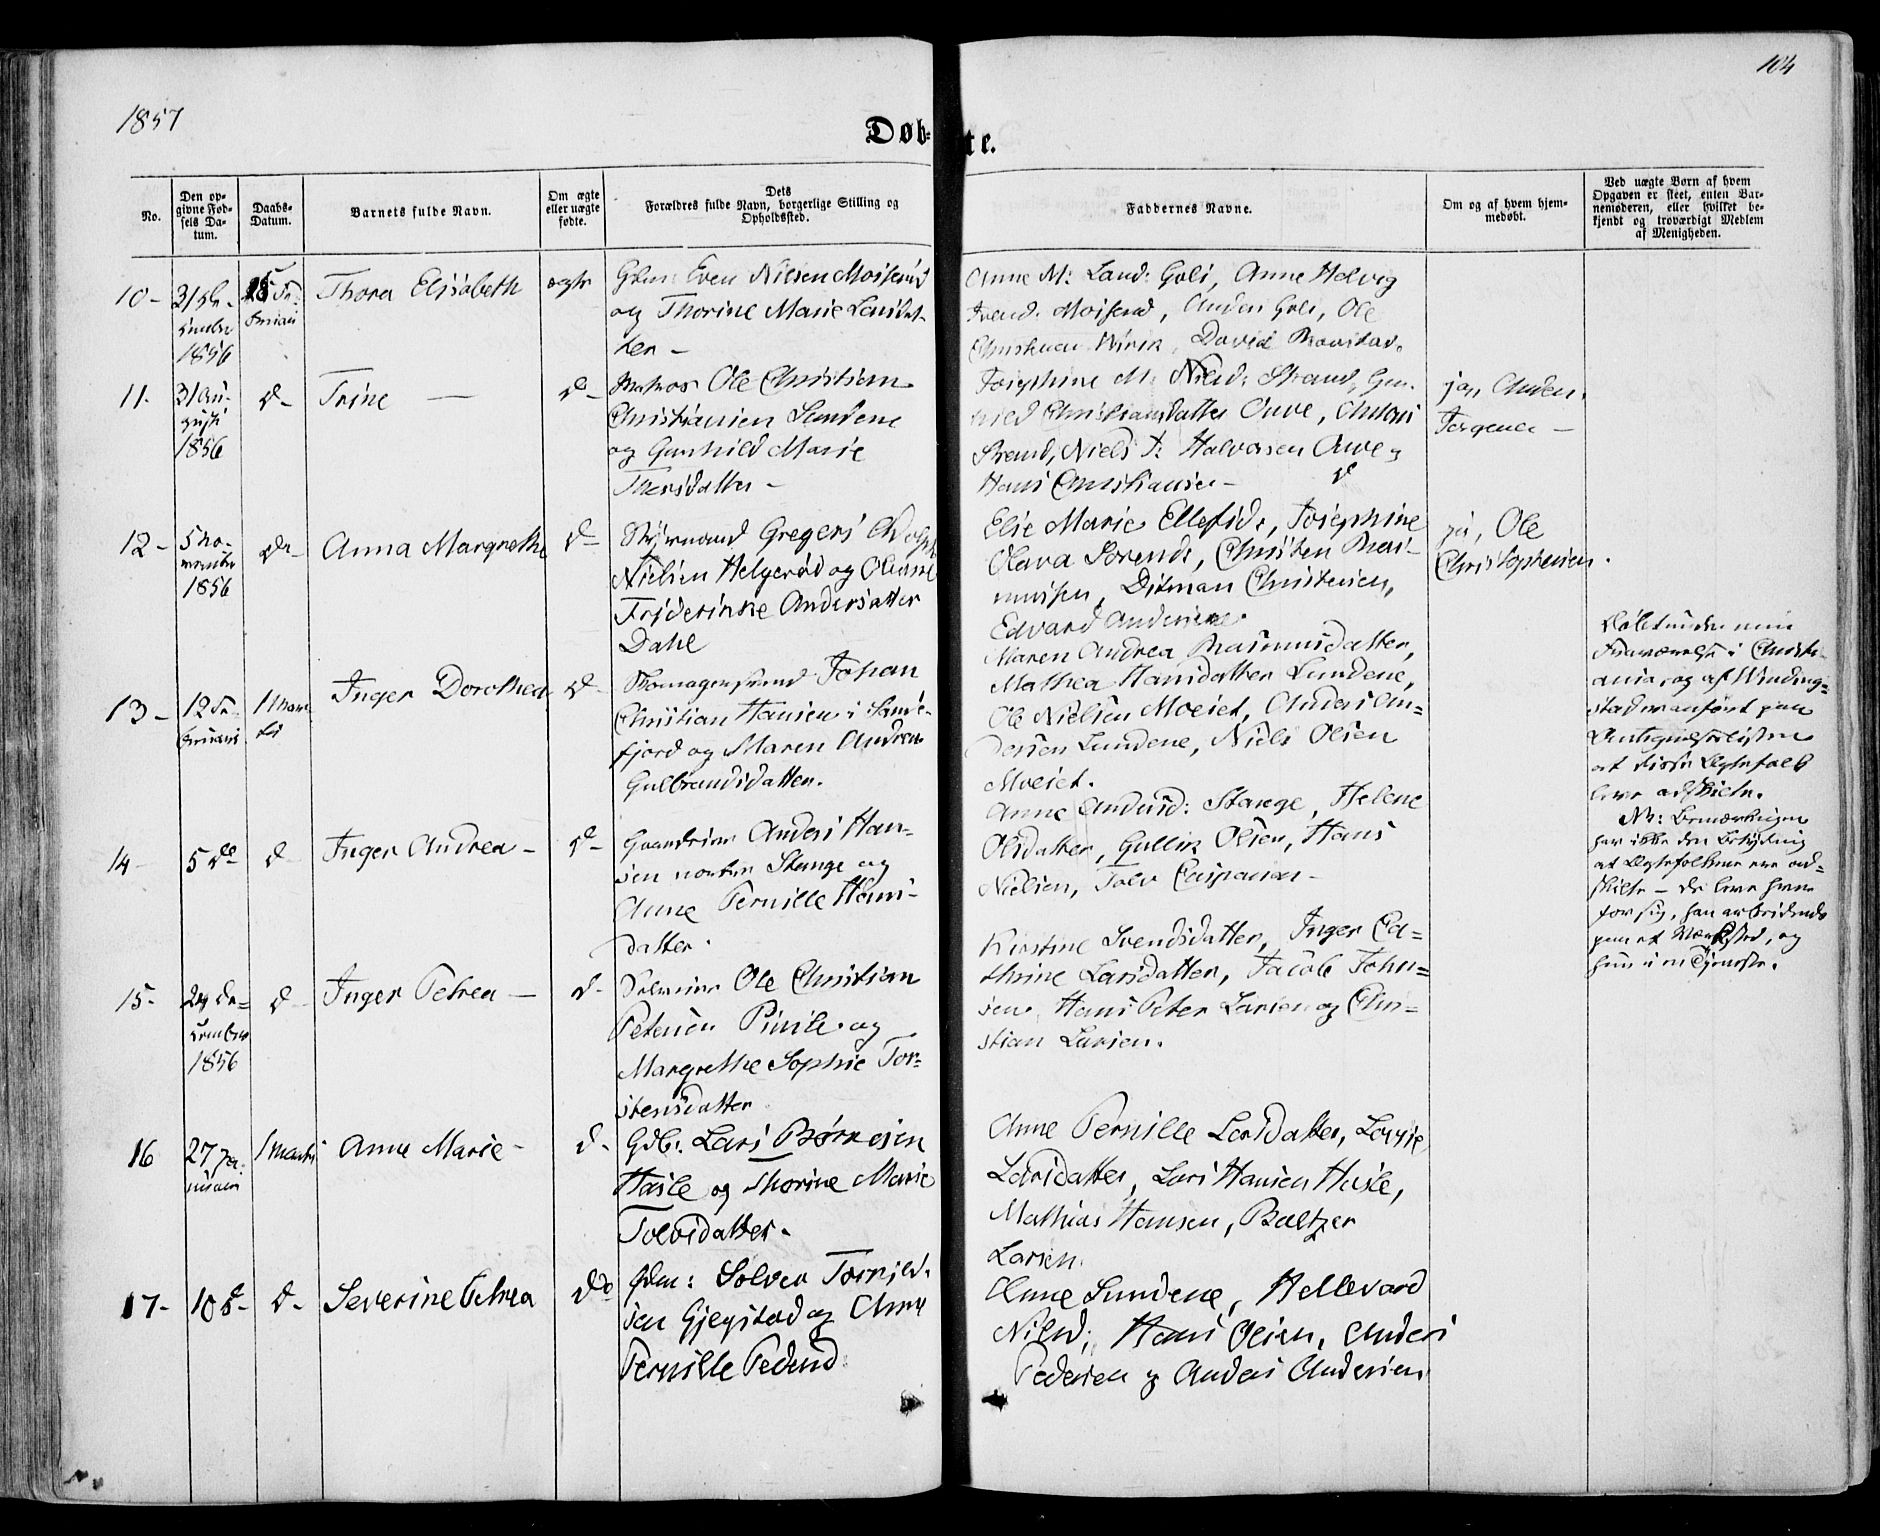 1857
104
Døb-
te.
No.
Den op-
givne Fød-
sels Da-
tum.
Daabs-
Datum.
Barnets fulde Navn.
Om ægte
eller uægte
fødte.
Dets
Forældres fulde Navn, borgerlige Stilling og
Opholdssted.
Faddernes Navne.
Om og af hvem hjem-
medøbt.
Ved uægte Børn af hvem
Opgaven er skeet, enten Bar-
nemoderen, eller hvilket be-
kjendt og troværdigt Medlem
af Menigheden.
10-
1856
Thora Elisabeth
ægte
Gbm: Even Nilsen Moiserød
og Thorine Marie Larsdat-
ter -
Anne M: Larsd: Goli, Anne Helvig
Anders Goli, Ole
David
11.
31 Au-
gusti
1856
d-
Trine -
d-
Matros Ole Christian
Christiansen Lundene
og Gunhild Marie
Thorsdatter -
Josephine M: Nilsd: Strand, Gun-
hild Christiansdatter Auve, Anders
Strand, Niels J: Halvorsen Auve,
Hans Christiansen -
ja, Anders
Jørgensen -
12-
5 No-
vember
1856
do-
Anna Margrethe
d-
Styrmand Gregers Adolph
Nielsen Helgerød og Oliane
Friderikke Andersdatter
Dahl
Elie Marie Ellefsd:, Josephine
Olava Sørensd:, Christen Rasi-
mussen, Ditman Christensen,
Edvard Andersen.
ja, Ole
Christophersen.
13-
12 Fe-
bruari
1 Mar-
ts
Inger Dorothea
d-
Skomagersvend Johan
Christian Hansen i Sande-
fjord og Maren Andrea
Gulbrandsdatter.
Maren Andrea Rasmusdatter,
Mathea Hansdatter Lundene,
Ole Nielsen Moeiet, Anders An-
dersen Lundene, Niels Olsen
Moeiet.
Døbt under min
Fraværelse i Christi-
ania, og af Winding-
stad anført paa
at disse Ægtefolk
leve adskilte.
NB: Bemærkningen
har ikke den Betydning
at Ægtefolkene ere ad-
skilte - de leve hver
for sig, han arbeidende
paa et Værksted, og
hun i en Tjeneste.
14-
5 de
d
Inger Andrea -
d-
Gaardeier Anders Han-
sen nordre Stange og
Anne Pernille Hans-
datter.
Anne Andersd: Stange, Helene
Olsdatter, Gullik Olsen, Hans
Nielsen, Tolv Caspersen -
15-
29 De-
cember
1856
d-
Inger Petrea -
d-
Selveier Ole Christian
Petersen Pinsle og
Margrethe Sophie Tor-
stensdatter
Kirstine Svendsdatter, Inger Ca-
thrine Larsdatter, Jacob John-
sen, Hans Peter Larsen og Chri-
stian Larsen.
16
27 Ja-
nuari
1 Marts
Anne Marie -
d-
Gdb: Lars Børresen
Hasle og Thorine Marie
Tolvsdatter.
Anne Pernille Larsdatter,
Larsdatter, Lars Hansen Hasle,
Mathias Hansen, Baltzer
Larsen.
17-
d-
Severine Petrea
do
Gdm: Solver Torkild-
sen Gjegstad og Anne
Pernille Pedersd:
Anne Lundene, Hellevard
Nilsd:, Hans Olsen, Anders
Pedersen og Anders Andersen